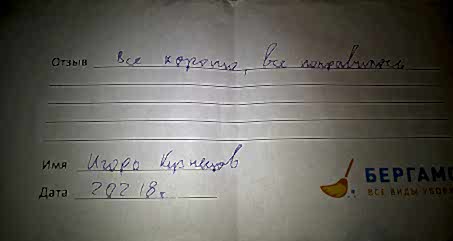 Отзыв все хорошо, все понравилось
Имя Игорь Кузнецов
БЕРГАМ
Дата
ВСЕ ВИДЫ УБОР